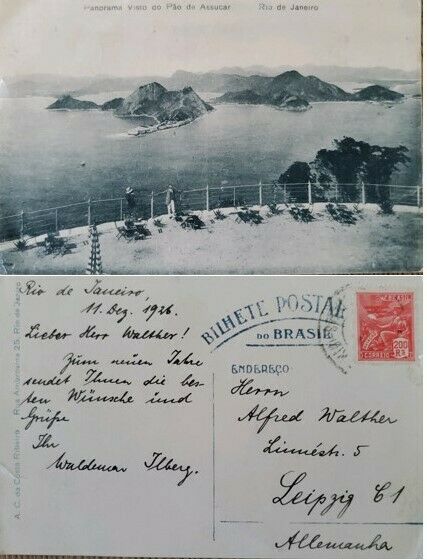 Panorama Visto do Pão de Assucar Rio de Janeiro
Rio de Janeiro,
11. Dez. 1926.
Lieber Herr Walther!
Zum neuen Jahre
sendet Ihnen die bes-
ten Wünsche und
Grüße
Ihr
Waldemar Ilberg.
A. C. da Costa Ribeiro Rua
25. Rio de Janeiro
BILHETE POSTAL
DO BRASIL
ENDEREÇO
BRASIL
CORREIO
200
Rs
Herrn
Alfred Walther
Linnéstr. 5
Leipzig C1
Allemanha